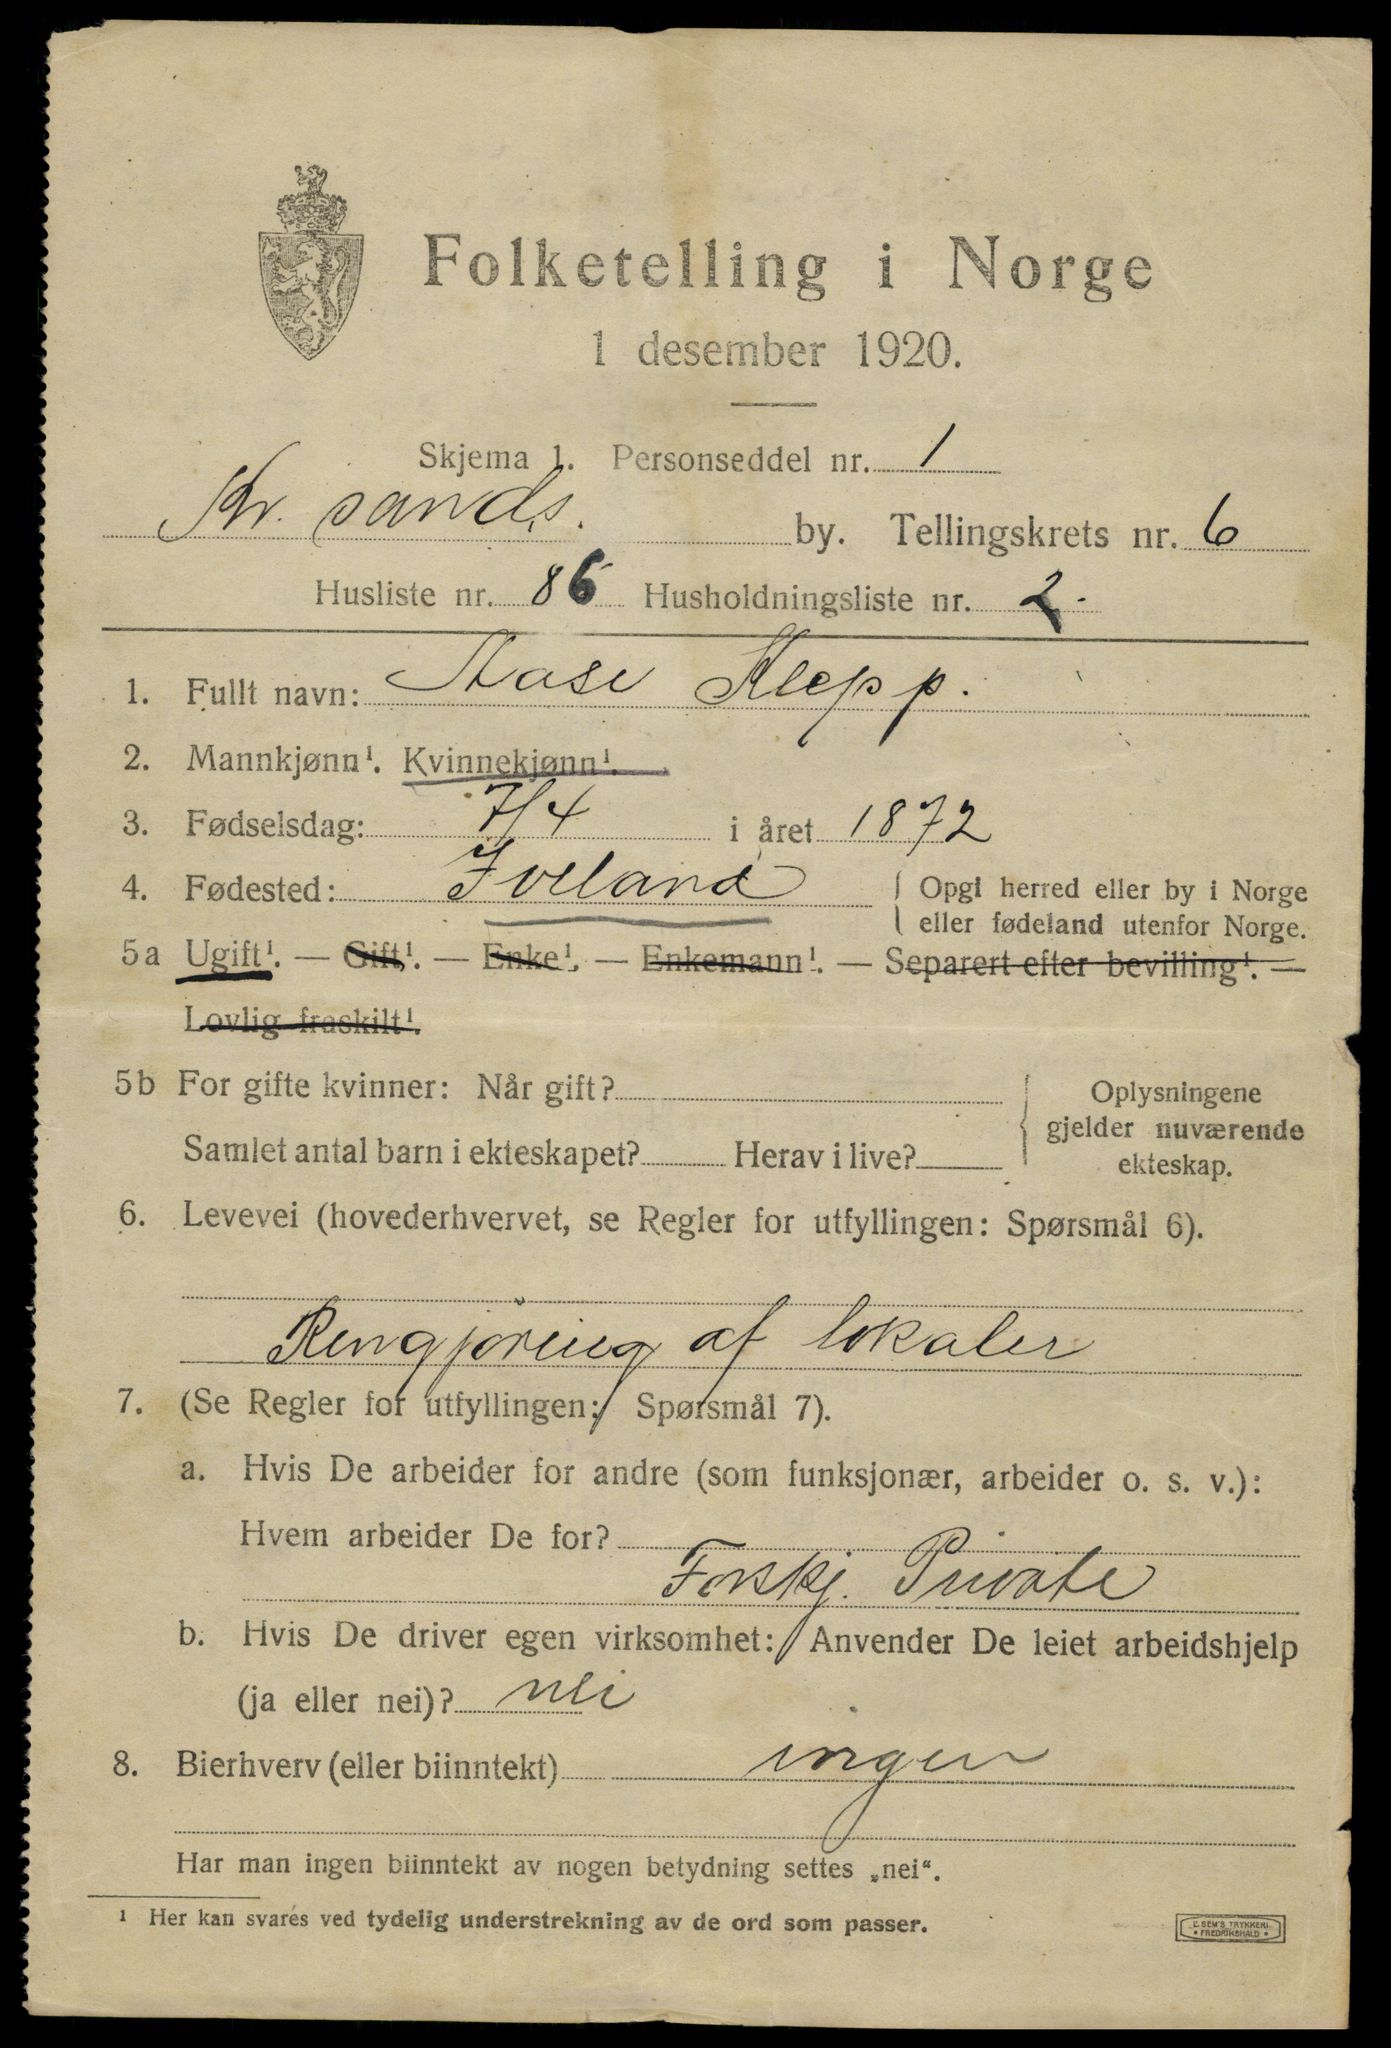 Folketelling i Norge
1 desember 1920.
Skjema 1. Personseddel nr. 1
Kr. sands. by. Tellingskrets nr. 6
Husliste nr. 86 Husholdningsliste nr. 2.
1. Fullt navn: Aase Klepp.
2. Mannkjønn¹. Kvinnekjønn¹.
3. Fødselsdag: 7/4 i året 1872
4. Fødested: Iveland { Opgi herred eller by i Norge
eller fødeland utenfor Norge.
5a Ugift¹. — Gift¹. — Enke¹. — Enkemann¹. — Separert efter bevilling¹. —
Lovlig fraskilt¹.
5b For gifte kvinner: Når gift? { Oplysningene
gjelder nuværende
Samlet antal barn i ekteskapet? Herav i live?
ekteskap.
6. Levevei (hovederhvervet, se Regler for utfyllingen: Spørsmål 6).
Rengjøring af lokaler
7. (Se Regler for utfyllingen: Spørsmål 7).
a. Hvis De arbeider for andre (som funksjonær, arbeider o. s. v.):
Hvem arbeider De for?
Forskj. Private
b. Hvis De driver egen virksomhet: Anvender De leiet arbeidshjelp
(ja eller nei)? nei
8. Bierhverv (eller biinntekt) ingen
Har man ingen biinntekt av nogen betydning settes „nei“.
¹ Her kan svares ved tydelig understrekning av de ord som passer.
E. SEM'S TRYKKERI
• FREDRIKSHALD •